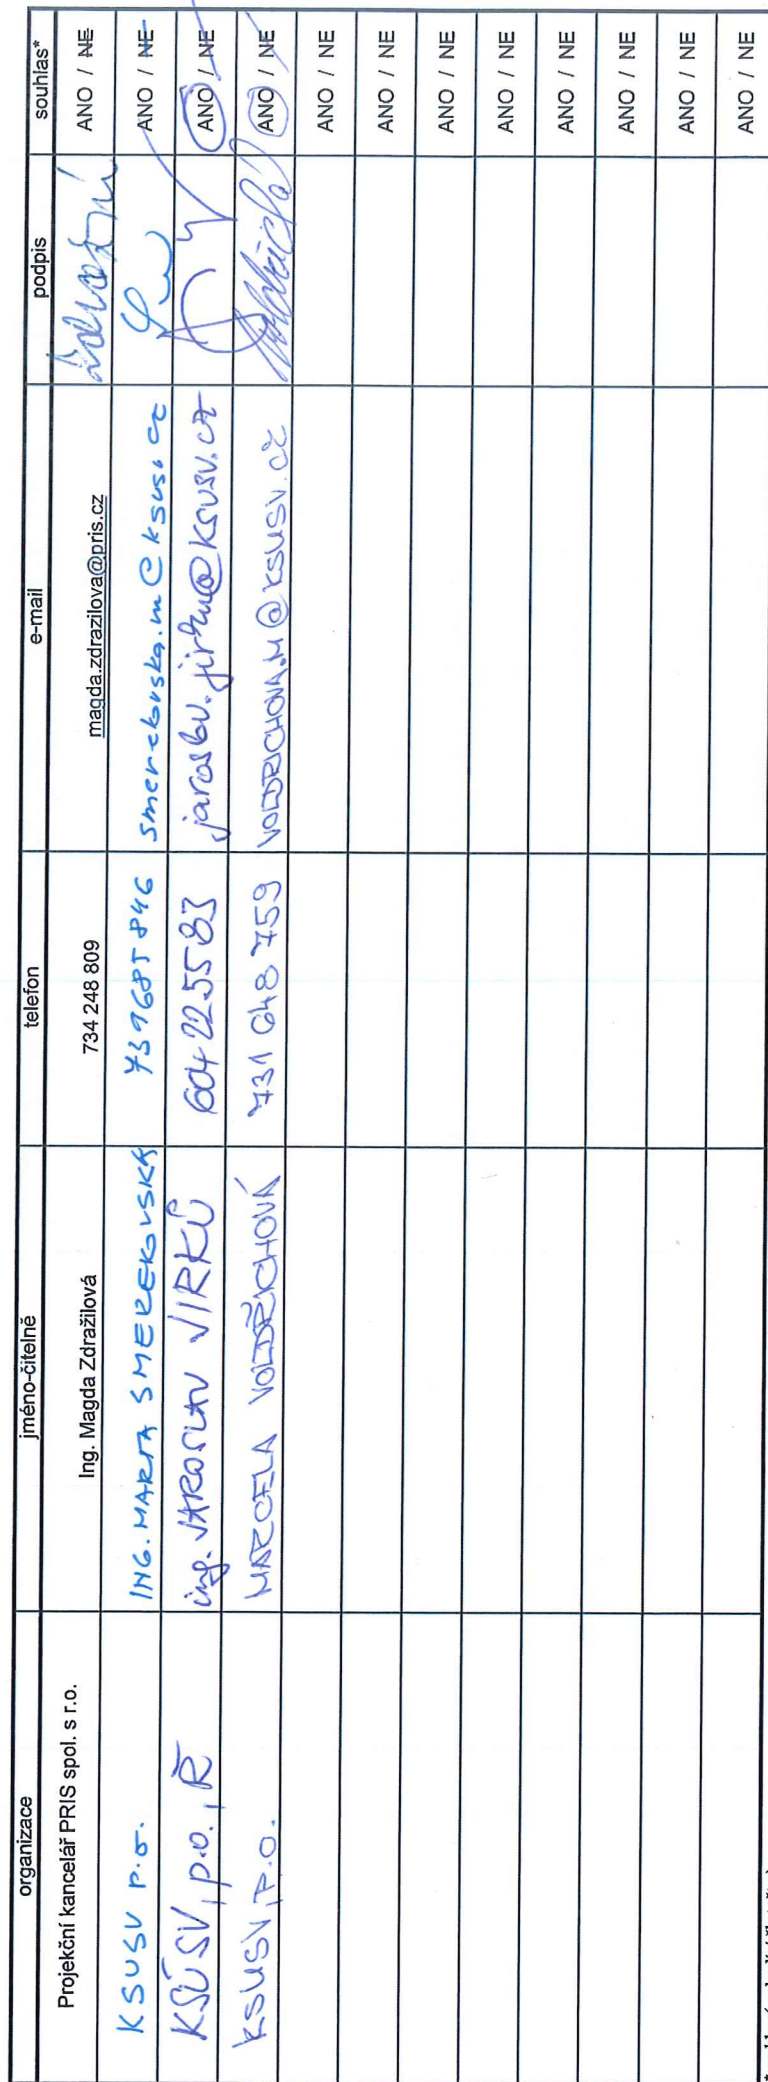 organizace jméno-čitelně telefon e-mail podpis souhlas*
Projekční kancelář PRIS spol. s r.o. Ing. Magda Zdražilová 734 248 809 magda.zdrazilova@pris.cz ANO / NE
KSUSV p.o. ING. MARTA SMEREKOVSKÁ 739685846 smerekovska.m@ksusv.cz ANO / NE
KSÚSV, p.o., Ř ing. JAROSLAV JIRKŮ 604225583 jaroslav.jirku@ksusv.cz ANO / NE
KSUSV, P.O. MARCELA VOLDŘICHOVÁ 731 648 759 VOLDRICHOVA.M@KSUSV.CZ ANO / NE
ANO / NE
ANO / NE
ANO / NE
ANO / NE
ANO / NE
ANO / NE
ANO / NE
ANO / NE